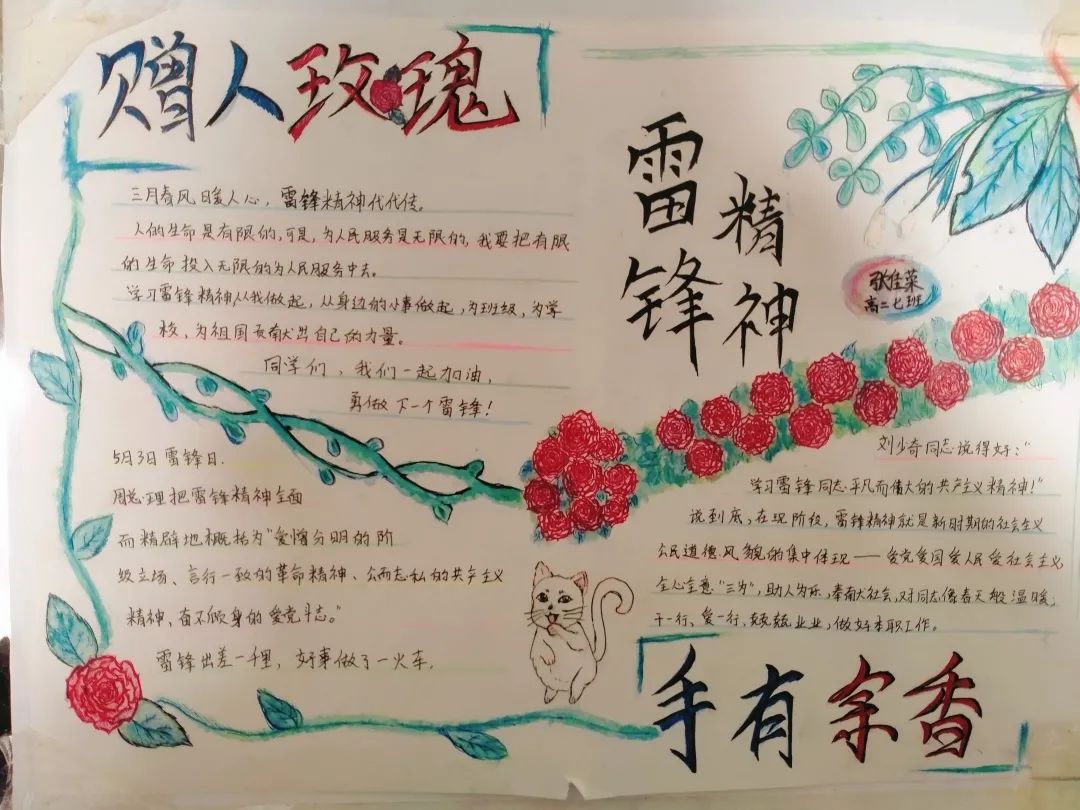 赠人玫瑰
三月春风暖人心，雷锋精神代代传。
人的生命是有限的，可是，为人民服务是无限的，我要把有限
的生命投入无限的为人民服务中去。
学习雷锋精神从我做起，从身边的小事做起，为班级，为学
校，为祖国贡献出自己的力量。
同学们，我们一起加油，
勇做下一个雷锋！
5月3日雷锋日.
周总理把雷锋精神全面
而精辟地概括为"爱憎分明的阶
级立场、言行一致的革命精神、公而忘私的共产主义
精神，奋不顾身的爱党斗志。"
雷锋出差一千里，好事做了一火车，
雷锋
精神
张佳菜
高二七班
刘少奇同志说得好："
学习雷锋同志平凡而伟大的共产主义精神！"
说到底，在现阶段，雷锋精神就是新时期的社会主义
公民道德风貌的集中体现——爱党爱国爱人民爱社会主义
全心全意"三为"，助人为乐，奉献社会，对同志像春天般温暖；
干一行、爱一行、兢兢业业，做好本职工作。
手有余香